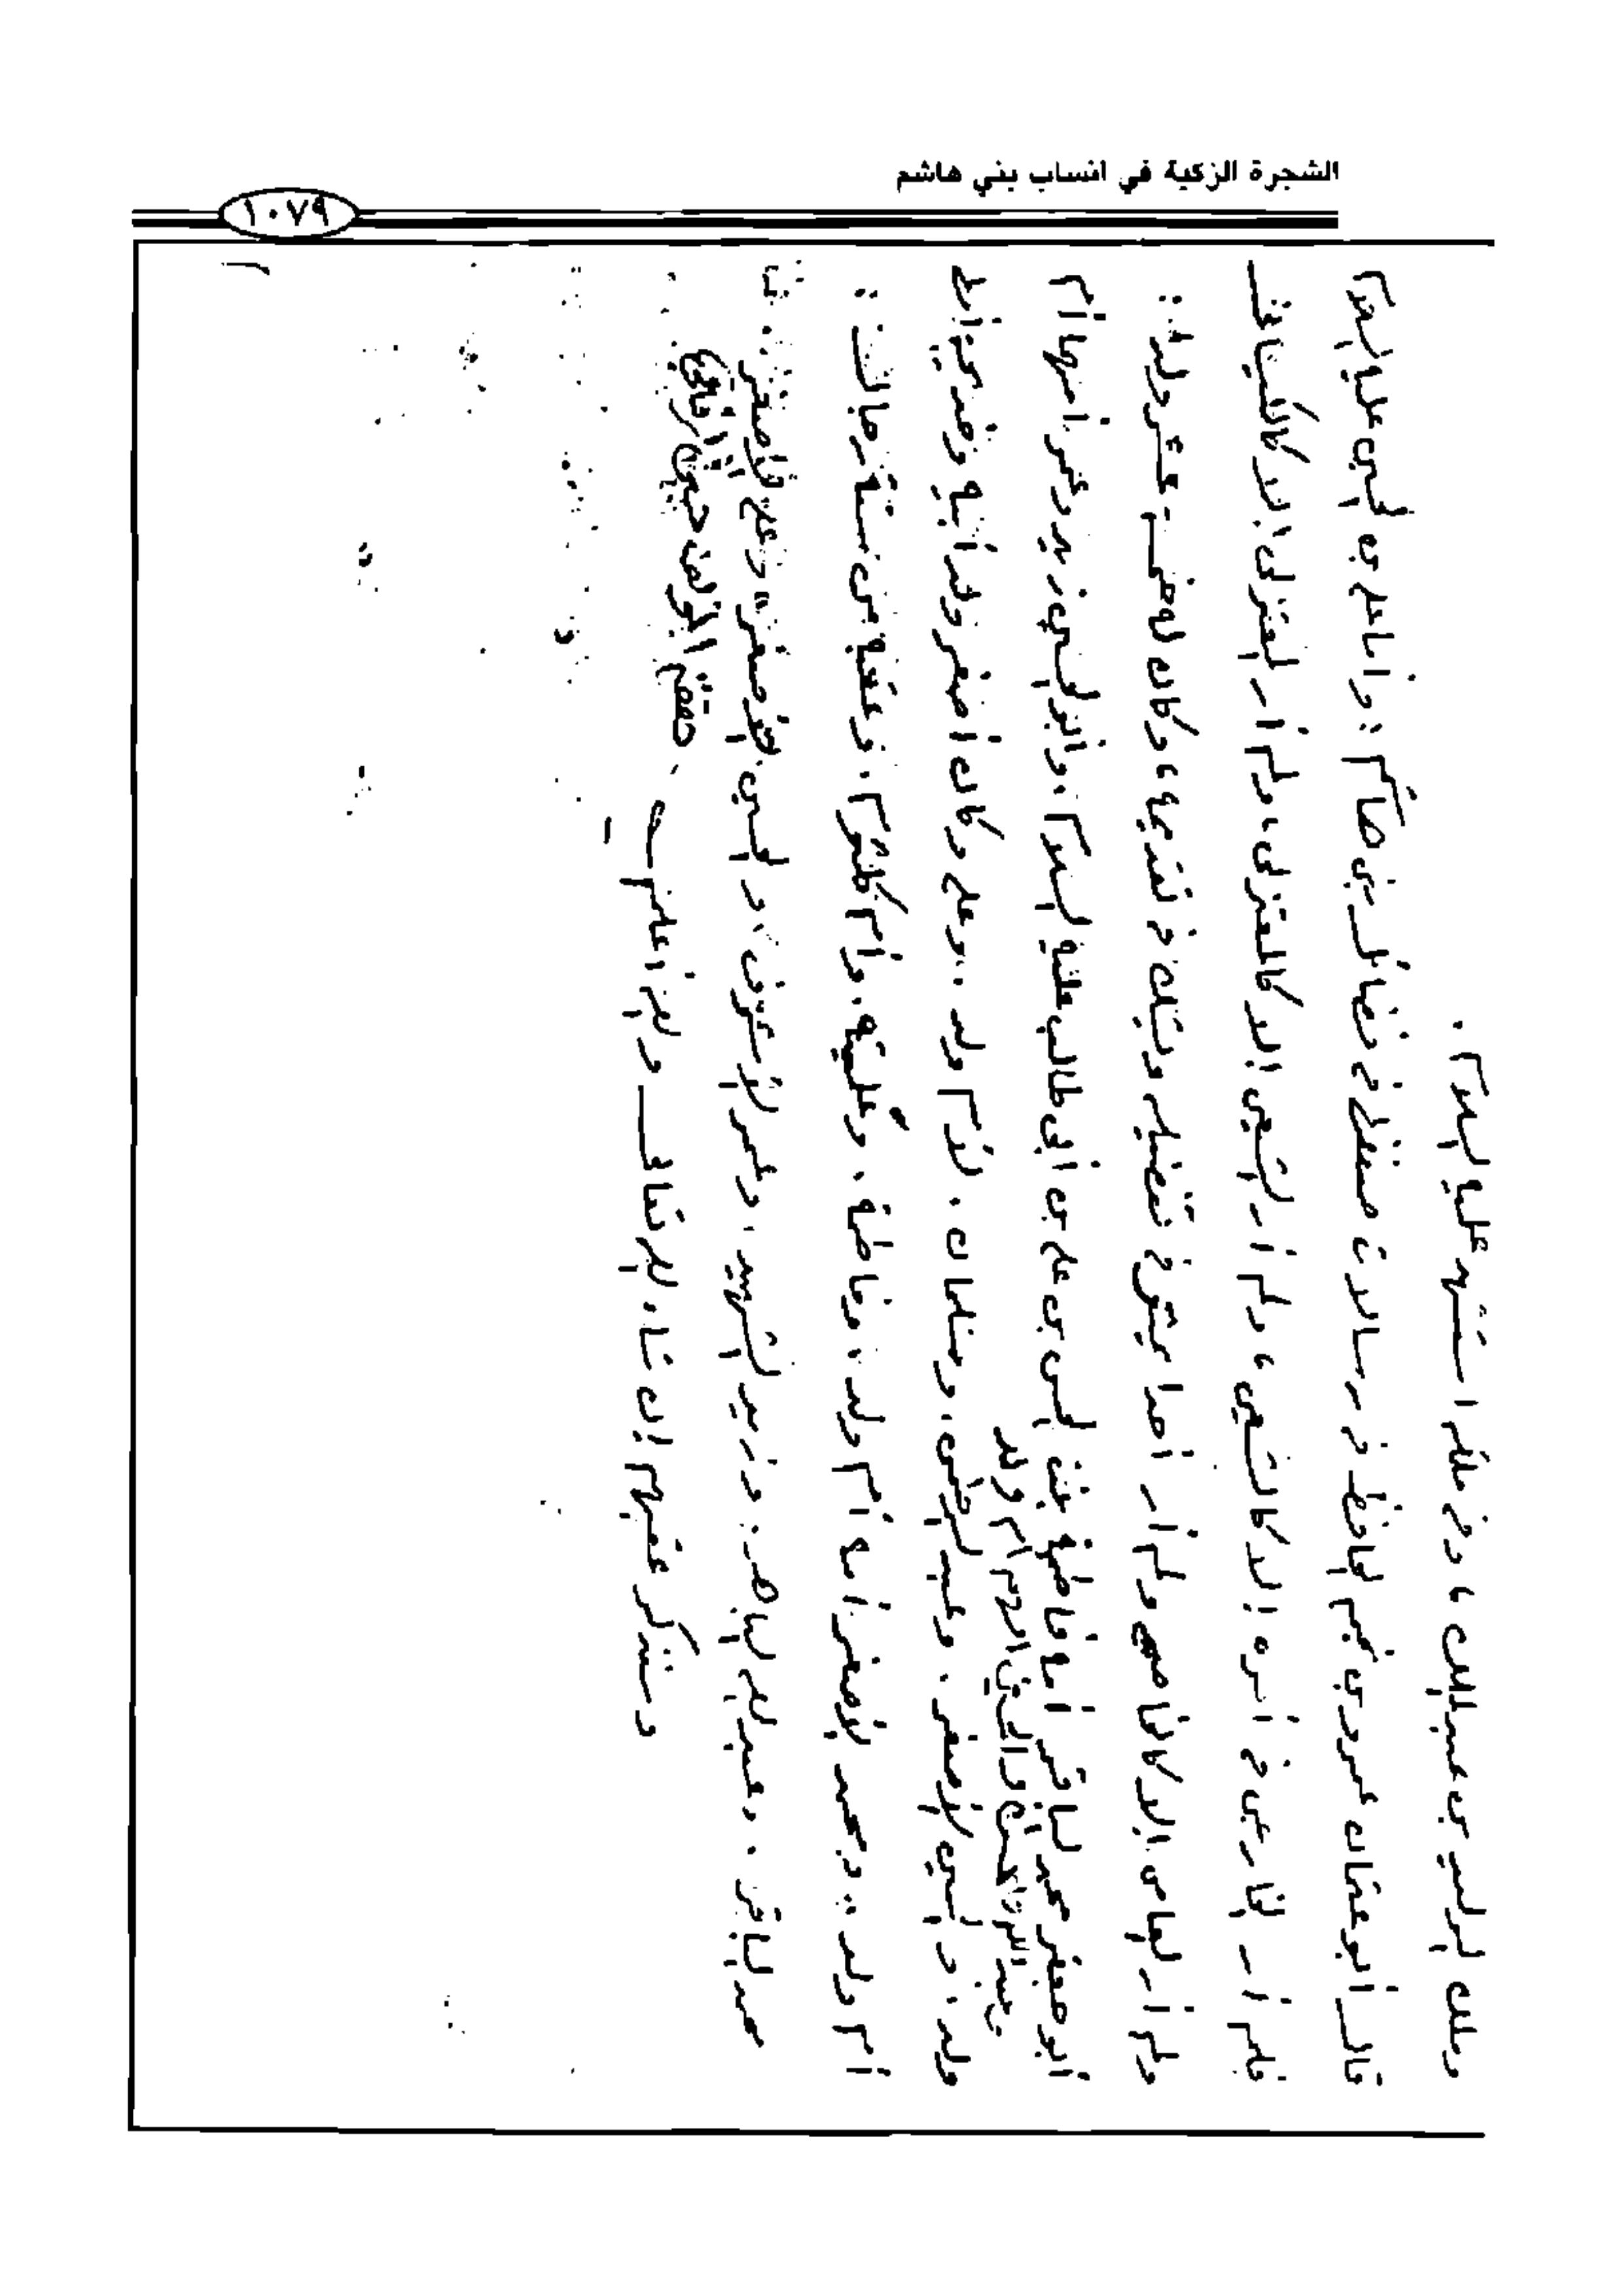 الشجرة الزكية في انساب بني هاشم
١٠٧٩
وملك الوليد بن عبدالملك ، وفي ملكه استشهد عليه السلام .
قال أبو عثمان عمرو بن بحر الجاحظ في رسالة صنفها في فضائل بني هاشم : وأما علي بن الحسين عليه السلام
فلم أر الخارجي في أمره إلا كالشيعي ، ولم أر الشيعي إلا كالمعتزلي ، ولم أر المعتزلي إلا كالعامي
ولم أر العامي إلا كالخاصي ولم أر أحدا يتمرى في تفضيله ويشك في تقديمه ، وكان له خمسة عشر ولدا :
أبو جعفر محمد الباقر أمه فاطمة بنت الحسن بن علي بن أبي طالب عليه السلام . وأبو الحسين زيد وعمر أمهما أم
ولد . وعبد الله والحسن والحسين الأكبر أمهم أم ولد
ولد . والحسين الأصغر . وعبد الرحمن . وسليمان . لأم ولد .. وعلي وكان أصغر ولد أبيه وخديجة
أم ولد .. ومحمد الأصغر أمه أم ولد .. وفاطمة . وعلية . وأم كلثوم . وعقبه من ستة رجال :
محمد الباقر . وعبد الله الباهر . وزيد الشهيد . وعمر الأشرف . والحسين الأصغر . وعلي الأصغر .
وسنذكر عقبهم إن شاء الله تعالى والله أعلم